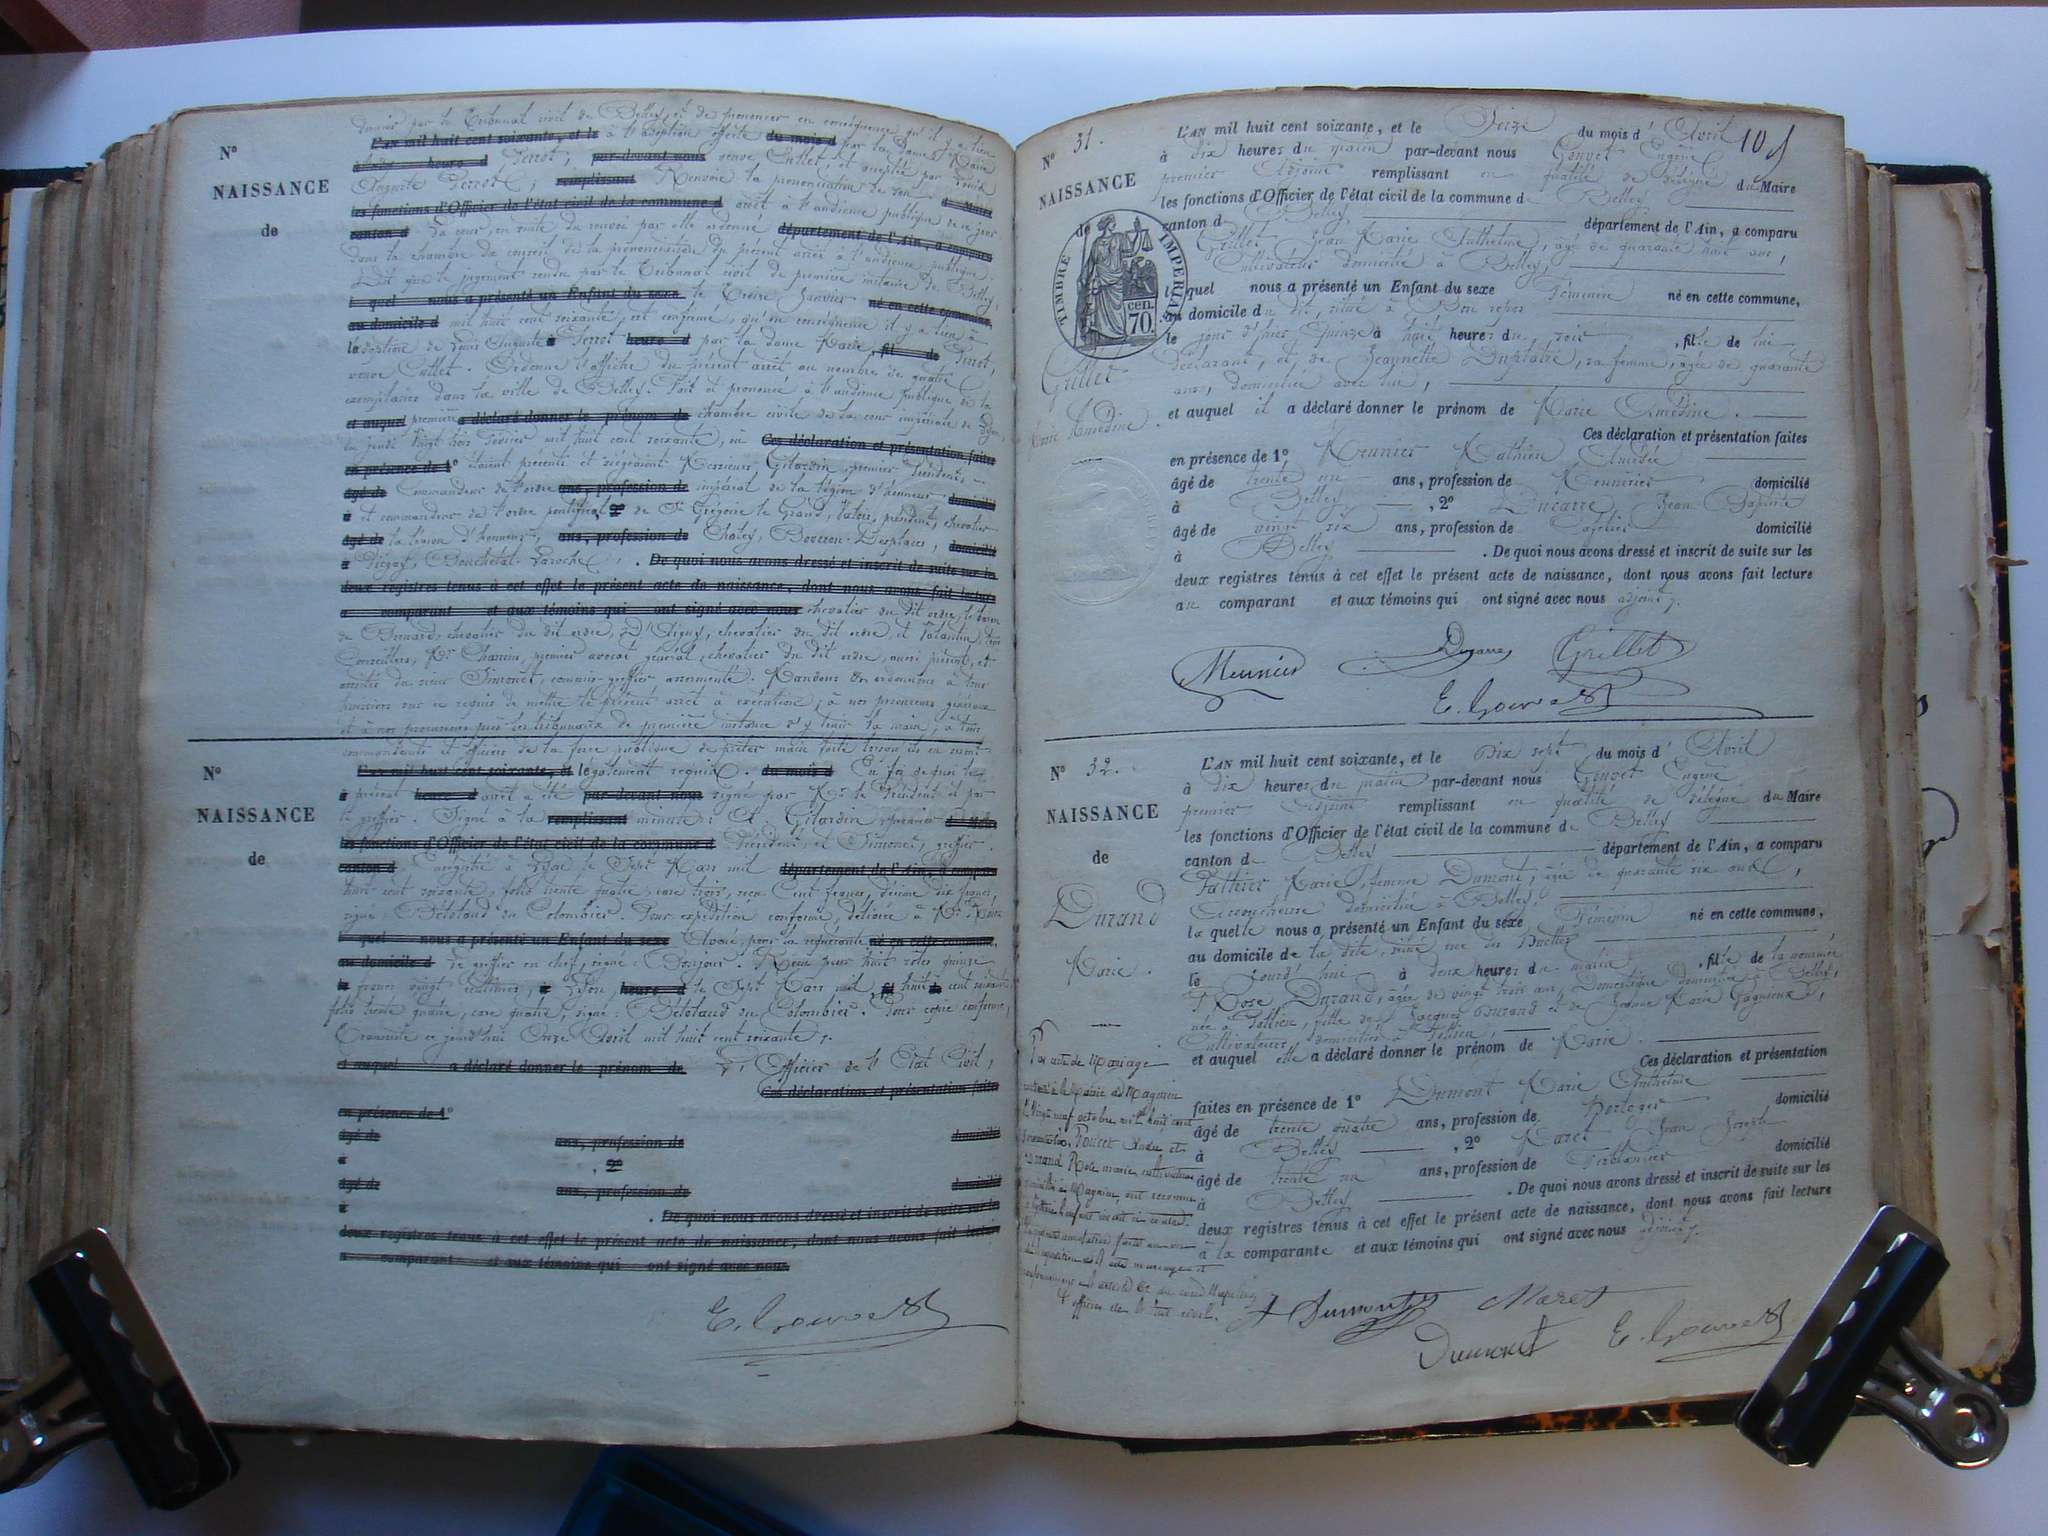 donnée par le Tribunal civil de Belley, et de prononcer en conséquence qu'il y a lieu
L'an mil huit cent soixante, et le à l'adoption offerte du mois d par la Dame Marie
heure d Perrot, par-devant nous veuve Cullet, et acceptée par Louis
Auguste Perrot, remplissant Renvoie la prononciation de son Maire
les fonctions d'Officier de l'état civil de la commune d arrêt à l'audience publique de ce jour.
canton d La cour, en suite du renvoi par elle ordonné département de l'Ain, a comparu
dans la chambre du conseil de la prononciation du présent arrêt à l'audience publique.
Dit que le jugement rendu par le Tribunal civil de première instance de Belley,
quel nous a présenté un Enfant du sexe le Treize Janvier né en cette commune,
au domicile d mil huit cent soixante, est confirmé, qu'en conséquence il y a lieu à
l'adoption de Louis Auguste Perrot heure d par la dame Marie fil de Perrot,
veuve Cullet. Ordonne l'affiche du présent arrêt au nombre de quatre
exemplaires dans la ville de Belley. Fait et prononcé à l'audience publique de la
et auquel première a déclaré donner le prénom de chambre civile de la cour impériale de Lyon,
du jeudi Vingt trois Février mil huit cent soixante, où Ces déclaration et présentation faites
en présence de 1° étaient présents et siégeaient Messieurs Gilardin, premier Président,
âgé de Commandeur de l'ordre ans, profession de impérial de la légion d'honneur domicilié
à et commandeur de l'ordre pontifical , 2° de St Grégoire le Grand, Valois, président, chevalier
âgé de la légion d'honneur, ans, profession de Chaley, Desplaces, domicilié
à Bouchetal-Laroche, . De quoi nous avons dressé et inscrit de suite sur les
deux registres tenus à cet effet le présent acte de naissance, dont nous avons fait lecture
a comparant et aux témoins qui ont signé avec nous chevalier du dit ordre, le baron
de Bernard, chevalier du dit ordre, D'Aigny, chevalier du dit ordre, et Valantin, tous
Conseillers, Mr Charrins, premier avocat général, chevalier du dit ordre, aussi présent, et
assistés du sieur Simonet, commis-greffier assermenté. Mandons et ordonnons à tous
huissiers sur ce requis de mettre le présent arrêt à exécution; à nos procureurs généraux
et à nos procureurs près les tribunaux de première instance d'y tenir la main; à tous
commandants et officiers de la force publique de prêter main forte lorsqu'ils en seront
N°
NAISSANCE
de
N°
NAISSANCE
de
L'an mil huit cent soixante, et le légalement requis. du mois d En foi de quoi le
à présent heure d arrêt a été par-devant nous signé par Mr le Président et par
le greffier. Signé à la remplissant minute: Gilardin premier Maire
les fonctions d'Officier de l'état civil de la commune d Président, et Simonet, greffier.
canton d Enregistré à Lyon le Sept Mars mil département de l'Ain, a comparu
huit cent soixante, folio trente quatre, case trois, reçu Cent francs, décime dix francs,
signé: Bétoland du Colombier. Pour expédition conforme, délivrée à Mr
quel nous a présenté un Enfant du sexe Avoué, pour la requérante né en cette commune,
au domicile d Le greffier en chef, signé: Bonjour. Reçu pour huit rôles quinze
le francs vingt centimes, à Lyon heure d le Sept Mars mil fil huit de cent soixante
folio trente quatre, case quatre, signé: Bétoland du Colombier. Pour copie conforme,
Transcrite ce jourd'hui Onze Avril mil huit cent soixante.
et auquel a déclaré donner le prénom de L'Officier de l'Etat Civil,
Ces déclaration et présentation faites
en présence de 1°
âgé de ans, profession de domicilié
à , 2°
âgé de ans, profession de domicilié
à . De quoi nous avons dressé et inscrit de suite sur les
deux registres tenus à cet effet le présent acte de naissance, dont nous avons fait lecture
a comparant et aux témoins qui ont signé avec nous
E. Gouvet
N° 31.
NAISSANCE
de
TIMBRE IMPERIAL
cen. 70.
Grillet
Marie Amédine.
L'AN mil huit cent soixante, et le Seize du mois d' Avril 10
à Dix heures du matin par-devant nous Gouvet Eugène
premier Adjoint remplissant en qualité de délégué du Maire
les fonctions d'Officier de l'état civil de la commune d Belley
canton d Belley département de l'Ain, a comparu
Grillet Jean Marie Anthelme, âgé de quarante huit ans,
Cultivateur domicilié à Belley,
lequel nous a présenté un Enfant du sexe Féminin né en cette commune,
au domicile du dit, situé à Bon repos
le jour d'hier Quinze à huit heures du soir , fille de lui
déclarant, et de Jeannette Duplâtre, sa femme, âgée de quarante
ans, domiciliée avec lui,
et auquel il a déclaré donner le prénom de Marie Amédine.
Ces déclaration et présentation faites
en présence de 1° Meunier Mathieu Amédée
âgé de trente un ans, profession de Menuisier domicilié
à Belley , 2° Ducarre Jean Baptiste
âgé de vingt six ans, profession de domicilié
à Belley . De quoi nous avons dressé et inscrit de suite sur les
deux registres tenus à cet effet le présent acte de naissance, dont nous avons fait lecture
au comparant et aux témoins qui ont signé avec nous adjoint.
Meunier Ducarre Grillet
E. Gouvet
N° 32.
NAISSANCE
de
Durand
Marie.
L'AN mil huit cent soixante, et le Dix sept du mois d' Avril
à Dix heures du matin par-devant nous Gouvet Eugène
premier Adjoint remplissant en qualité de délégué du Maire
les fonctions d'Officier de l'état civil de la commune de Belley
canton de Belley département de l'Ain, a comparu
Pathier Marie, femme Dumont, âgée de quarante six ans,
Accoucheuse domiciliée à Belley,
laquelle nous a présenté un Enfant du sexe Féminin né en cette commune,
au domicile de la dite, situé rue des
le jourd'hui à deux heures du matin , fille de la nommée
Rose Durand, âgée de vingt trois ans, Domestique domiciliée à Belley,
née à Pollieu, fille de Jacques Durand et de Jeanne Marie Gagnieux,
Cultivateurs, domiciliés à Pollieu,
et auquel elle a déclaré donner le prénom de Marie.
Ces déclaration et présentation
faites en présence de 1° Dumont Marie Anthelme
âgé de trente quatre ans, profession de Horloger domicilié
à Belley , 2° Maret Jean Joseph
âgé de trente un ans, profession de Ferblantier domicilié
à Belley . De quoi nous avons dressé et inscrit de suite sur les
deux registres tenus à cet effet le présent acte de naissance, dont nous avons fait lecture
à la comparante et aux témoins qui ont signé avec nous adjoint.
Par acte de Mariage
à la Mairie de Magnieu
le Vingt neuf octobre mil huit cent
soixante, André et
Durand Rose marie cultivateurs
domiciliés à Magnieu, ont reconnu
l'officier de l'état civil.
Dumont Maret
Dumont E. Gouvet